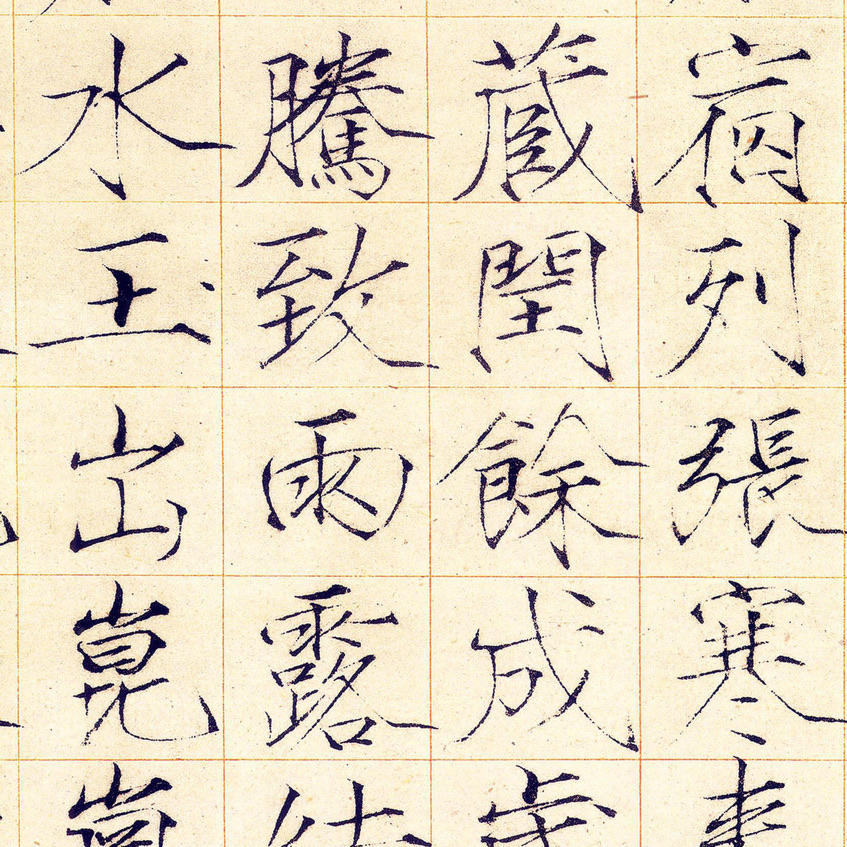 宿列張寒來
藏閏餘成歲
騰致雨露結
水玉出崑崗